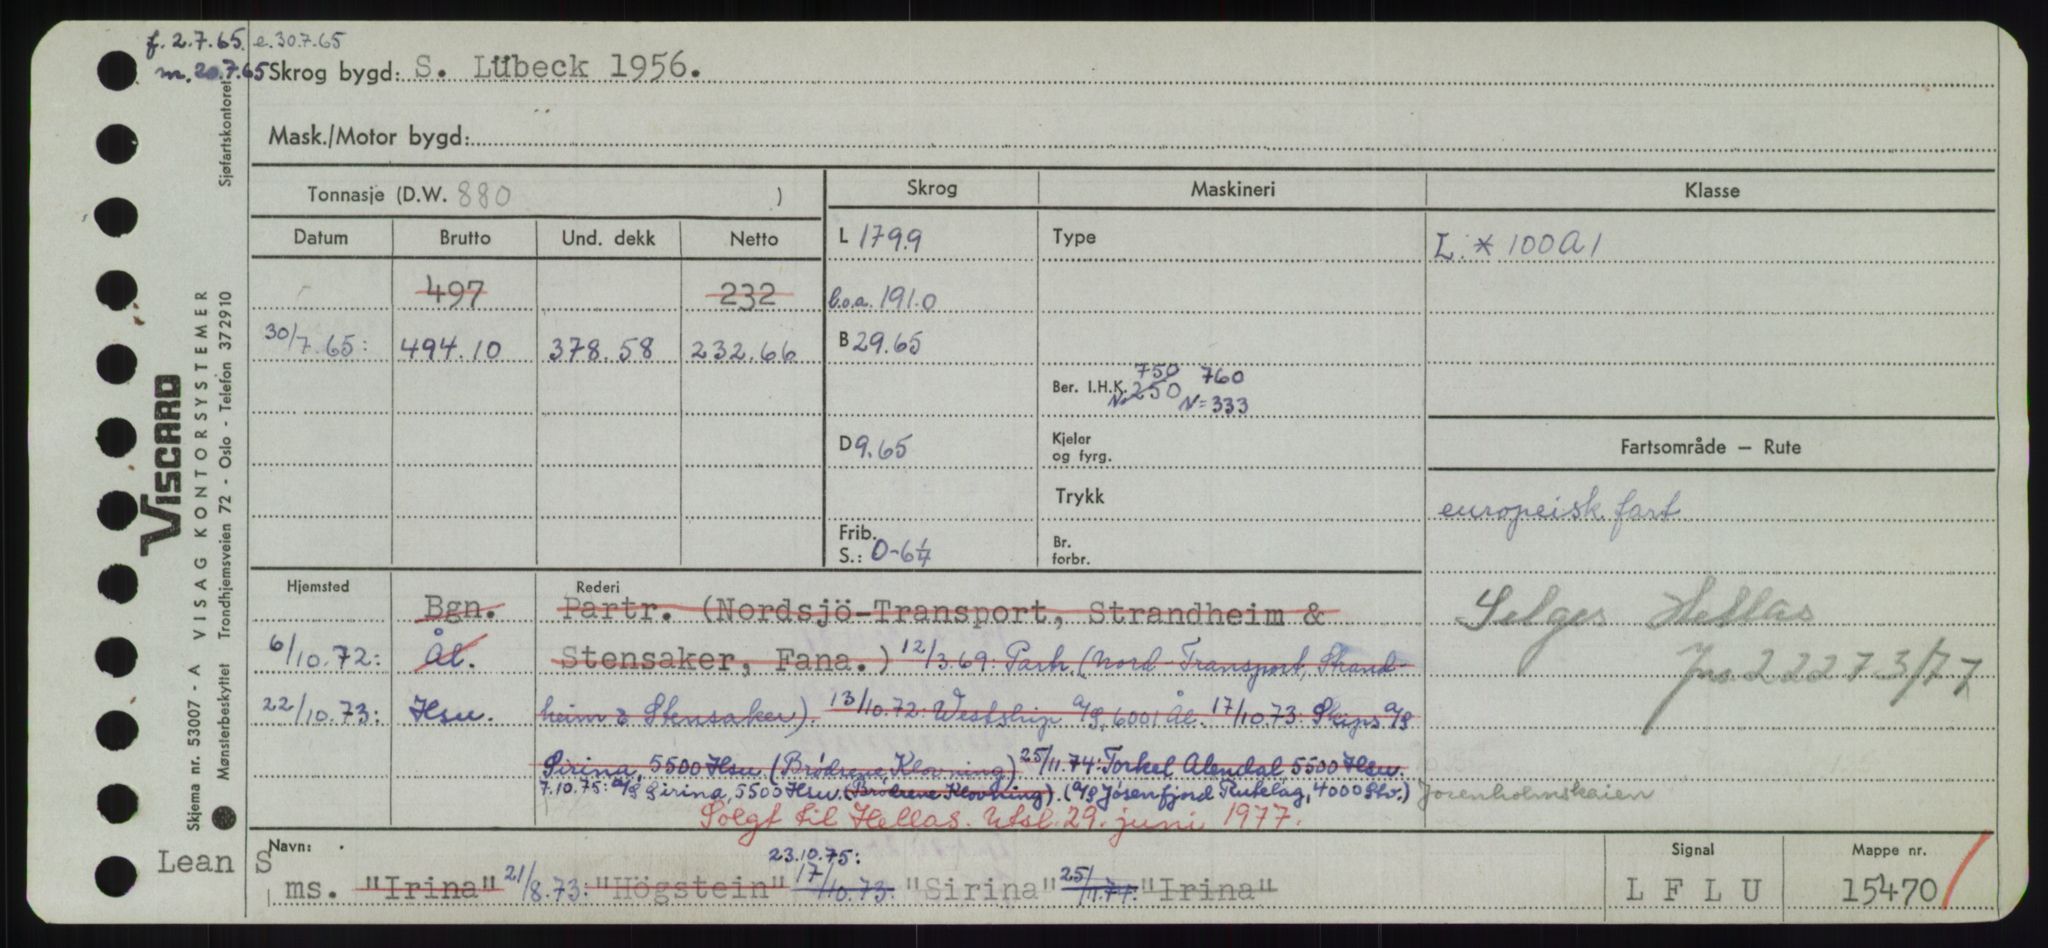 f. 2.7.65. e. 30.7.65
m. 20.7.65 Skrog bygd: S. Lübeck 1956.
Mask./Motor bygd:
Tonnasje (D.W. 880 )
Skrog
Maskineri
Klasse
Datum Brutto Und. dekk Netto
L 179.9
Type
L. * 100A1
497 232
l.o.a. 191.0
30/7.65: 494.10 378.58 232.66
B 29.65
750 760
Ber. I.H.K. N=250 N=333
D 9.65
Kjeler
og fyrg.
Fartsområde — Rute
Trykk
europeisk fart
Frib.
S.: 0-6¼
Br.
forbr.
Hjemsted
Rederi
Bgn. Partr. (Nordsjö-Transport, Strandheim &
Selges Hellas
6/10.72: Ål. Stensaker, Fana.) 12/3.69: Partr. (Nord-Transport, Strand-
Jns 2227 3/77
22/10.73: Hsu. heim & Stensaker). 13/10.72: Westship A/S, 6001 Ål. 17/10.73: Skips A/S
Sirina, 5500 Hsu. (Brødrene Klovning) 25/11.74: Torkel Alendal 5500 Hsu.
7.10.75: A/S Sirina, 5500 Hsu. (Brødrene Klovning). (A/S Jøsenfjord Rutelag, 4000 Stv.) Josenholmskaien
Solgt til Hellas. Utsl. 29. juni 1977.
Navn:
Lean S
23.10.75:
ms. "Irina" 21/8.73: "Högstein" 17/10.73: "Sirina" 25/11.74: "Irina"
Signal
L F L U
Mappe nr.
15470
Skjema nr. 53007 - A VISAG KONTORSYSTEMER
Mønsterbeskyttet Trondhjemsveien 72 - Oslo - Telefon 372910
Sjøfartskontoret
VISCARD